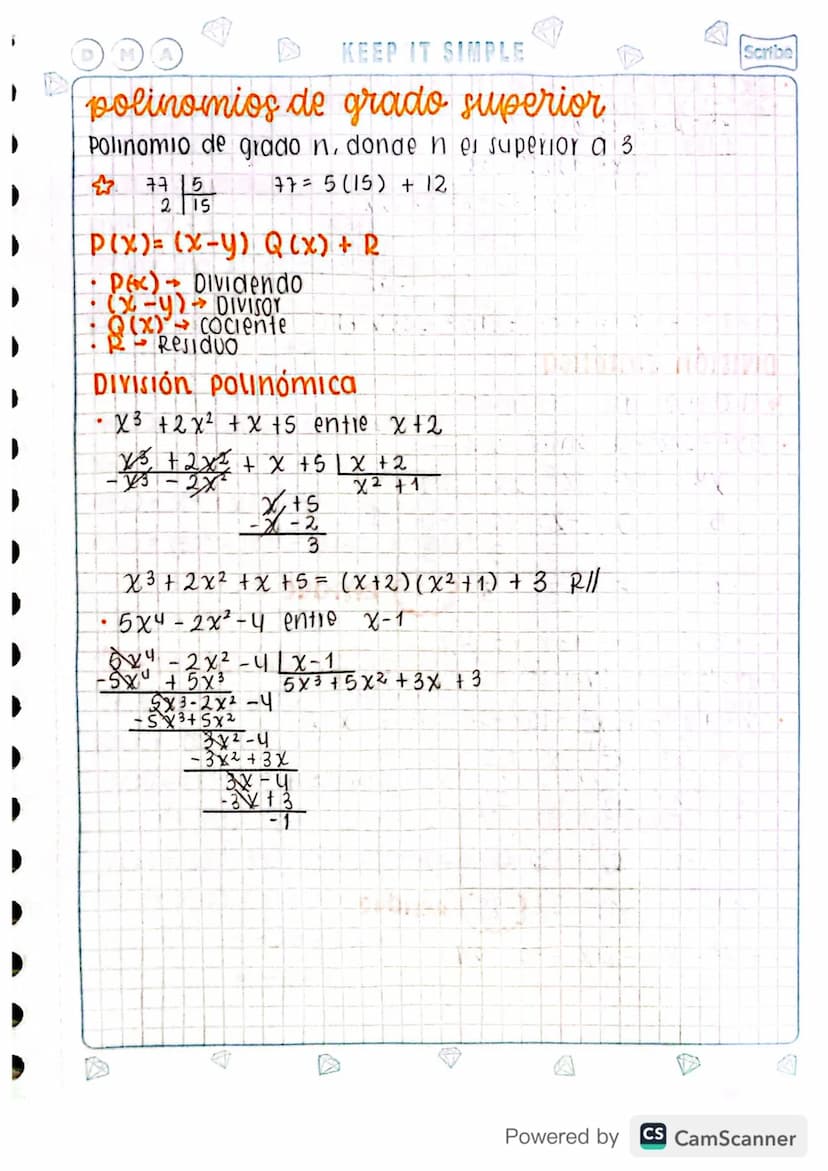 D M A KEEP IT SIMPLE Scribe
polinomios de grado superior
Polinomio de grado n, donde n es superior a 3
77 |5 77 = 5(15) + 12
2 |15
P(x) = (x-y) Q(x) + R
• P(x) → Dividendo
• (x-y) → Divisor
• Q(x) → cociente
• R → Residuo
División polinómica
• x³ + 2x² + x + 5 entre x+2
x³ + 2x² + x + 5 | x + 2
- x³ - 2x² x² + 1
x + 5
- x - 2
3
x³ + 2x² + x + 5 = (x+2)(x²+1) + 3 R//
• 5x⁴ - 2x² - 4 entre x-1
5x⁴ - 2x² - 4 | x-1
-5x⁴ + 5x³ 5x³ + 5x² + 3x + 3
5x³ - 2x² - 4
-5x³ + 5x²
3x² - 4
- 3x² + 3x
3x - 4
-3x + 3
-1
Powered by CS CamScanner